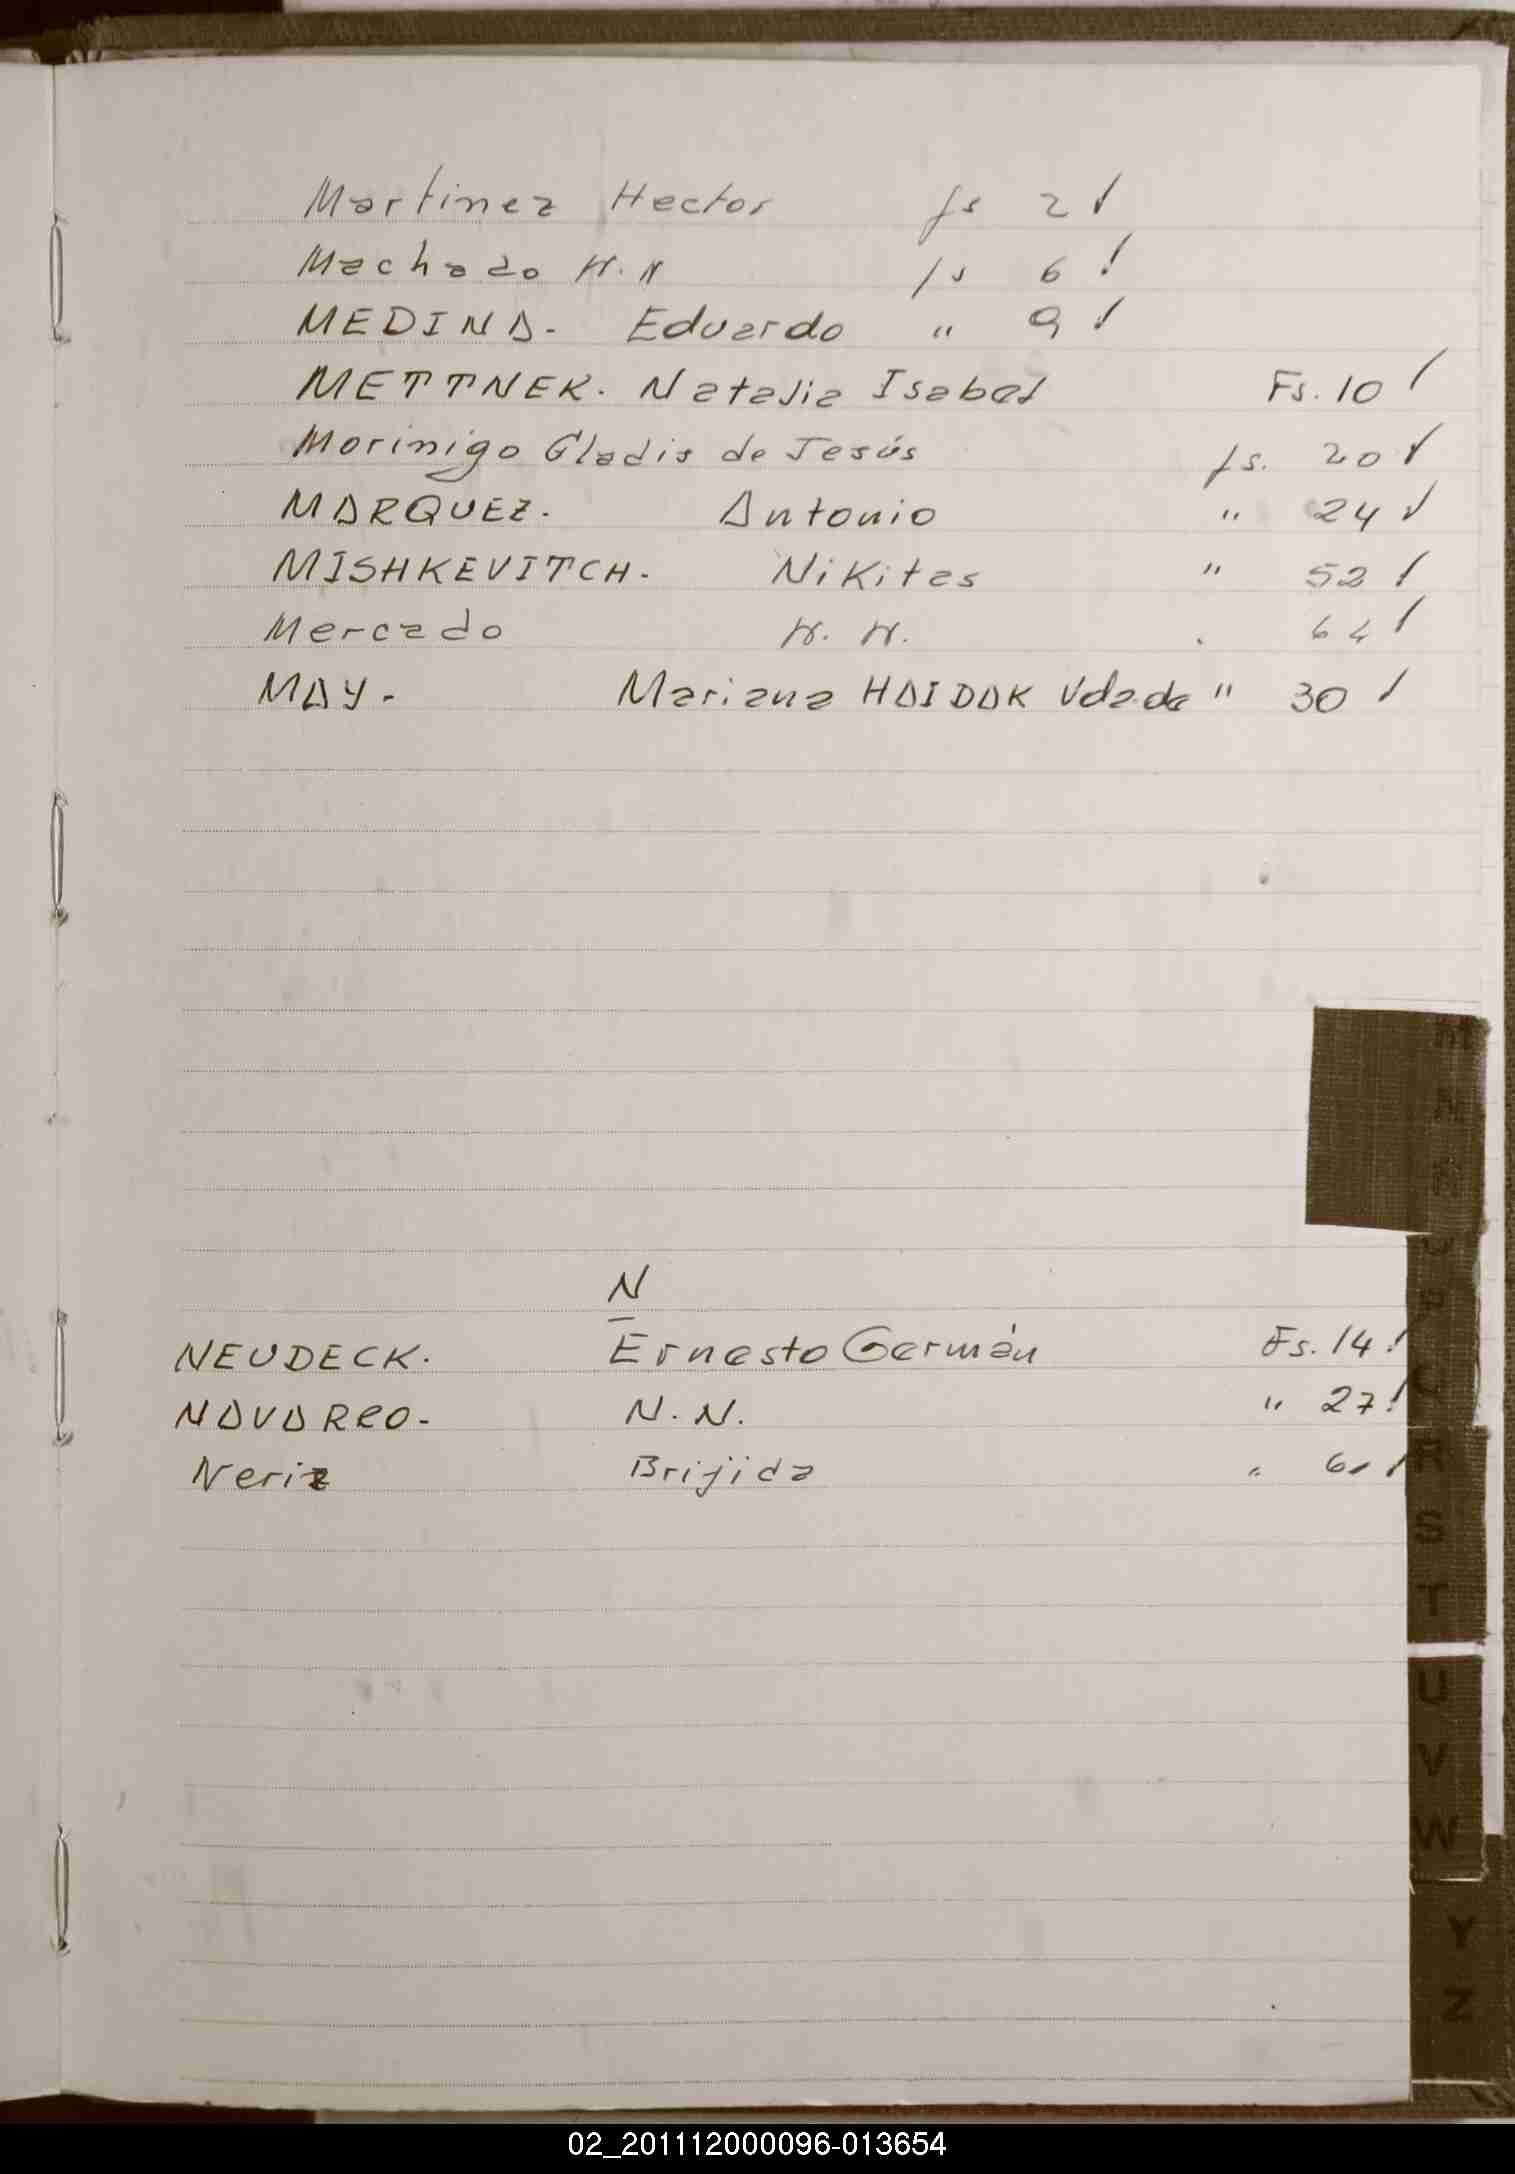 Martinez Hector fs 2 /
Machado N.N fs 6 /
MEDINA. Eduardo " 9 /
METTNEK. Natalia Isabel Fs. 10 /
Morinigo Gladis de Jesús fs. 20 /
MARQUEZ. Antonio " 24 /
MISHKEVITCH. Nikitas " 52 /
Mercado N. N. " 64 /
MAY. Mariana HAIDAK Vda. de " 30 /
N
NEUDECK. Ernesto Germán Fs. 14 /
NAVARRO. N. N. " 27 /
Neriz Brijida "
M
N
R
S
T
U
V
W
Y
Z
02_201112000096-013654